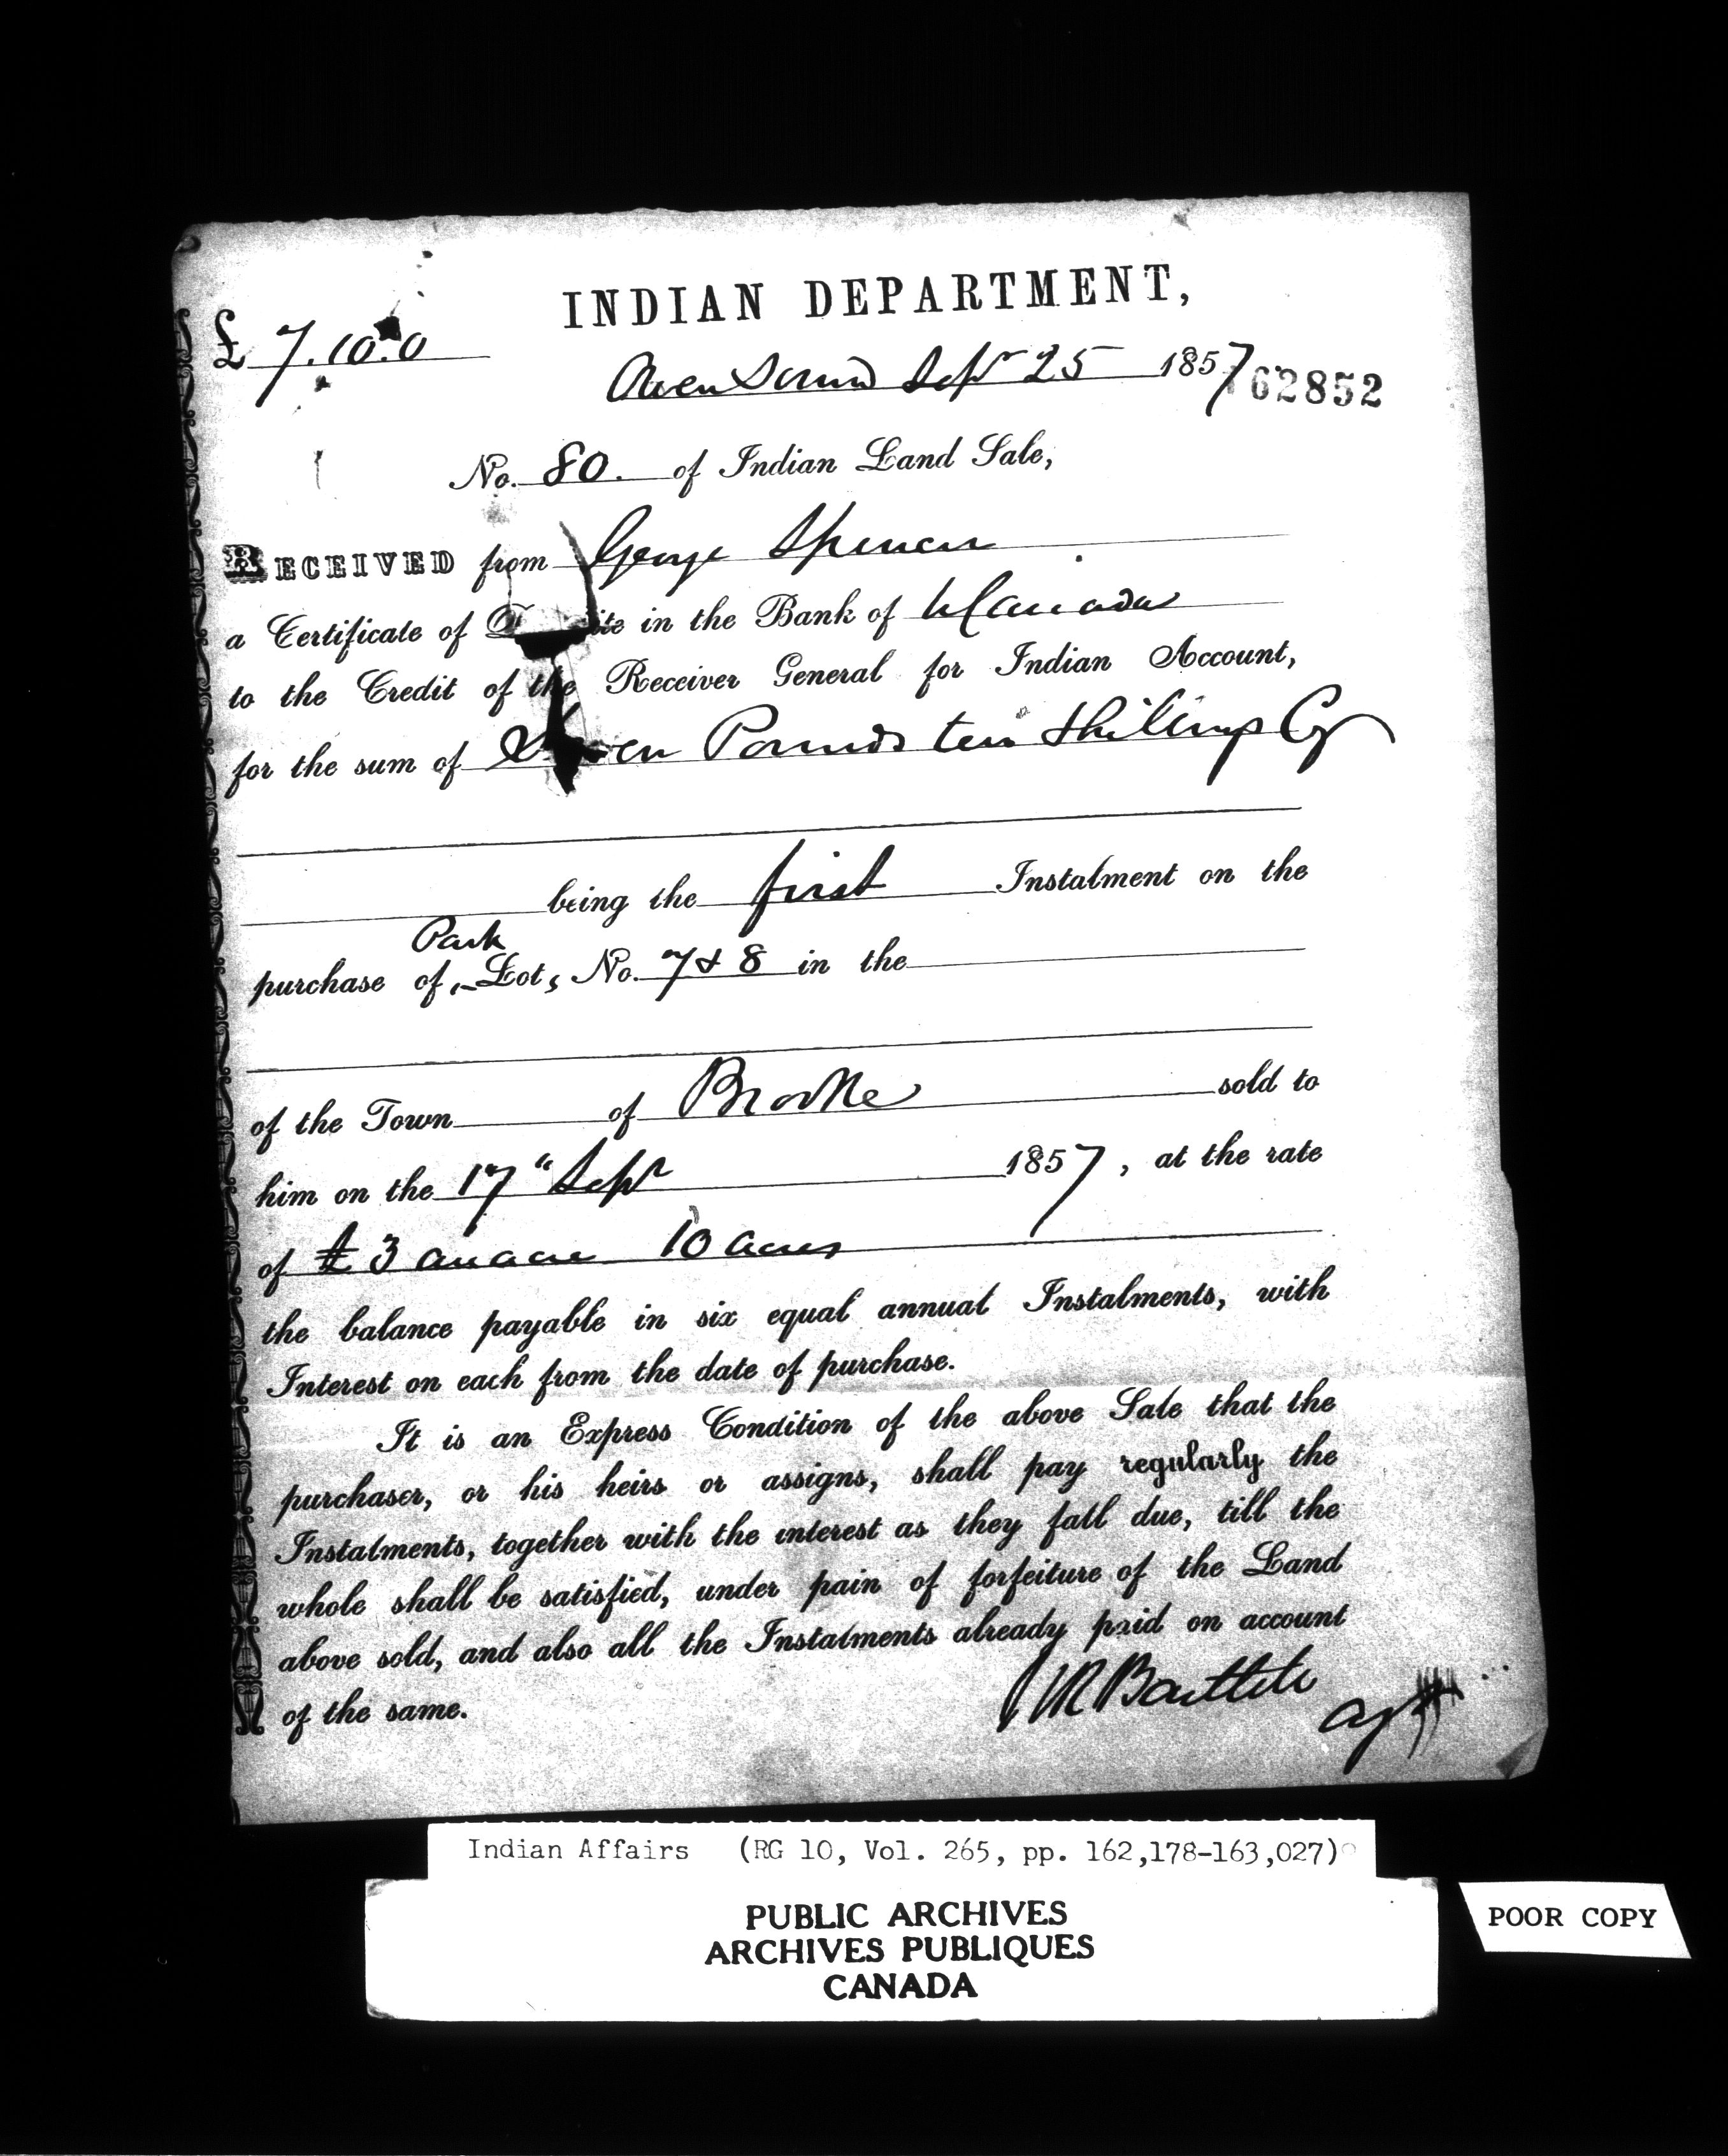 INDIAN DEPARTMENT,
£ 7.10.0
Owen Sound Sept 25 1857
162852
No. 80. of Indian Land Sale,
RECEIVED from George Spencer
a Certificate of in the Bank of U Canada
to the Credit of the Receiver General for Indian Account,
for the sum of Seven Pounds ten Shillings Cy
being the first Instalment on the
Park
purchase of Lots No. 7 & 8 in the
of the Town of Brooke sold to
him on the 17" Sept 1857, at the rate
of £3 an acre 10 acres
the balance payable in six equal annual Instalments, with
Interest on each from the date of purchase.
It is an Express Condition of the above Sale that the
purchaser, or his heirs or assigns, shall pay regularly the
Instalments, together with the interest as they fall due, till the
whole shall be satisfied, under pain of forfeiture of the Land
above sold, and also all the Instalments already paid on account
of the same.
WR Bartlett
Agt
Indian Affairs (RG 10, Vol. 265, pp. 162,178-163,027)
PUBLIC ARCHIVES
ARCHIVES PUBLIQUES
CANADA
POOR COPY